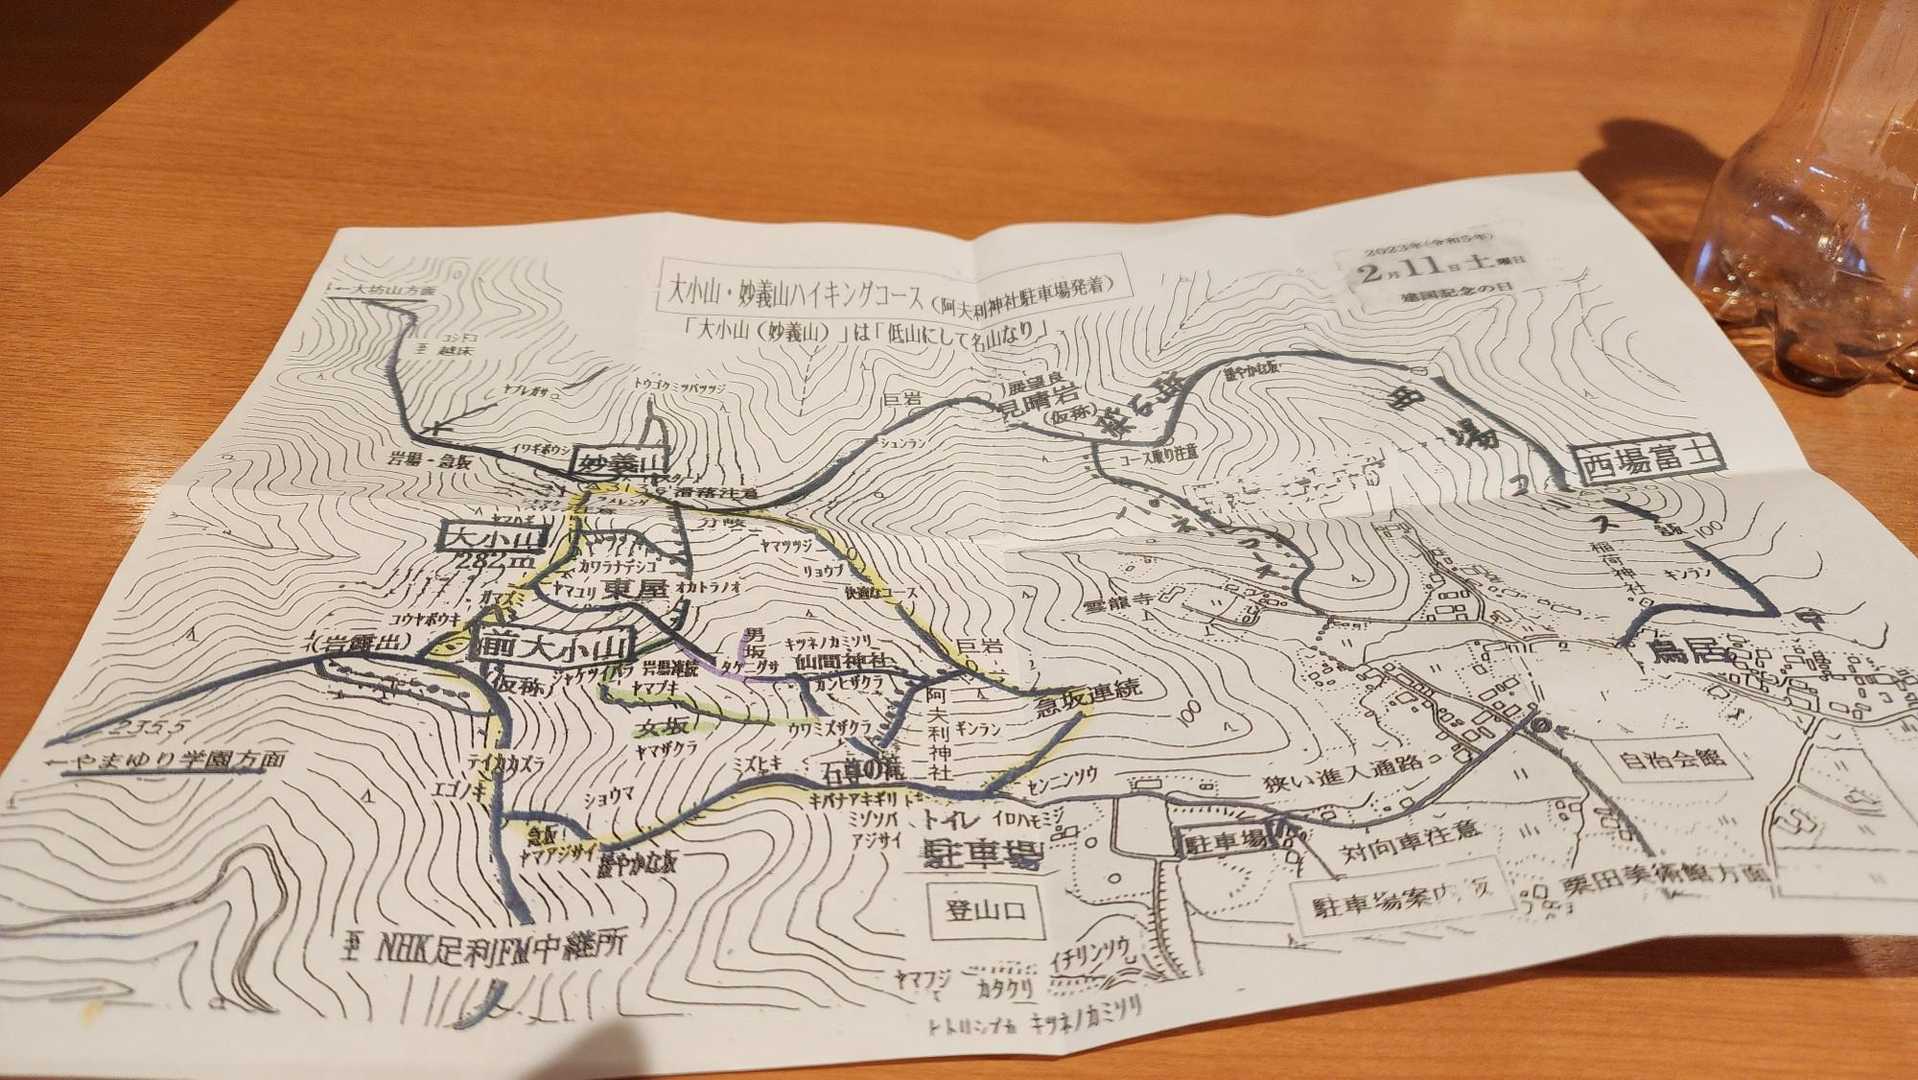 2023年(令和5年)
2月11日土曜日
建国記念の日
大小山・妙義山ハイキングコース(阿夫利神社駐車場発着)
「大小山(妙義山)」は「低山にして名山なり」
←大坊山方面
コシドコ
至 越床
ヤブレガサ
トウゴクミツバツツジ
巨岩
展望良
見晴岩
(仮称)
緩やかな坂
西場コース
岩場・急坂
イワギボウシ
妙義山
シュンラン
コース取り注意
西場富士
滑落注意
分岐
ハイキングコース
100
大小山
282m
ヤマツツジ
カワラナデシコ
リョウブ
稲荷神社
キンラン
ガマズミ
ヤマユリ
東屋
オカトラノオ
快適なコース
雲龍寺
コウヤボウキ
(岩露出)
前大小山
(仮称)
男坂
キツネノカミソリ
仙間神社
巨岩
鳥居
岩場連続
カンヒザクラ
ヤマブキ
阿夫利神社
急坂連続
100
235.5
女坂
ウワミズザクラ
ギンラン
←やまゆり学園方面
ヤマザクラ
テイカカズラ
ミズヒキ
石尊の滝
センニンソウ
狭い進入通路
自治会館
エゴノキ
ショウマ
キバナアキギリ
ミゾソバ
トイレ
イロハモミジ
急坂
ヤマアジサイ
緩やかな坂
アジサイ
駐車場
駐車場
対向車注意
登山口
駐車場案内板
栗田美術館方面
至 NHK足利FM中継所
ヤマフジ
カタクリ
イチリンソウ
キツネノカミソリ